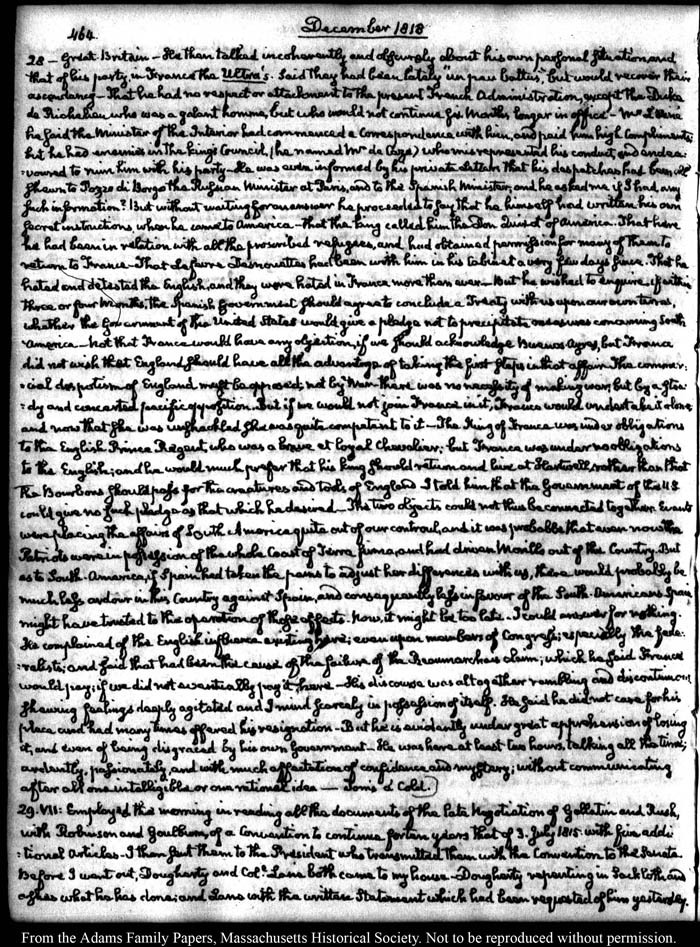 464
December 1818
28 — Great Britain — He then talked incoherently and obscurely about his own personal situation and
that of his party in France the Ultra's. Said they had been lately "un peu battus," but would recover their
ascendancy — That he had no respect or attachment to the present French Administration, except the Duke
de Richelieu who was a galant homme, but who would not continue six Months longer in office — Mr Lainé
he said the Minister of the Interior had commenced a Correspondence with him, and paid him high Compliments
but he had enemies in the King's Council, (he named Mr de Caze) who misrepresented his conduct, and endea-
:voured to ruin him with his party — He was even informed by his private Letters that his despatches had been all
shewn to Pozzo di Borgo the Russian Minister at Paris, and to the Spanish Minister, and he asked me if I had any
such information? But without waiting for an answer he proceeded to say that he himself had written his own
secret instructions, when he came to America — that the King called him the Don Quixot of America. That here
he had been in relation with all the proscribed refugees, and had obtained permission for many of them to
return to France — That Lefevre Desnouettes had been with him in his cabinet a very few days since. That he
hated and detested the English, and they were hated in France more than ever — But he wished to enquire, if within
three or four Months, the Spanish Government should agree to conclude a Treaty with us upon our own terms,
whether the Government of the United States would give a pledge not to precipitate measures concerning South
America — Not that France would have any objection, if we should acknowledge Buenos Ayres, but France
did not wish that England should have all the advantage of taking the first steps in that affair. The commer-
:cial despotism of England must be opposed; not by War — there was no necessity of making war, but by a stea-
:dy and concerted pacific opposition. But if we would not join France in it, France would undertake it alone
and now that she was unshackled she was quite competent to it — The King of France was under obligations
to the English Prince Regent, who was a brave et loyal Chevalier; but France was under no obligations
to the English; and he would much prefer that his King should return and live at Hartwell, rather than that
the Bourbons should pass for the creatures and tools of England. I told him that the Government of the U.S
could give no such pledge as that which he desired — The two objects could not thus be connected together. Events
were placing the affairs of South America quite out of our controul, and it was probable that even now the
Patriots were in possession of the whole Coast of Terra firma, and had driven Morillo out of the Country. But
as to South-America, if Spain had taken the pains to adjust her differences with us, there would probably be
much less ardour in this Country against Spain, and consequently less in favour of the South-Americans. Spain
might have trusted to the operation of those effects. Now, it might be too late. I could answer for nothing.
He complained of the English influence existing here; even upon members of Congress; especially the fede-
:ralists; and said that had been the cause of the failure of the Beaumarchais claim; which he said France
would pay, if we did not eventually pay it here — His discourse was altogether rambling and discontinuous
shewing feelings deeply agitated and a mind scarcely in possession of itself. He said he did not care for his
place and had many times offered his resignation — But he is evidently under great apprehension of losing
it, and even of being disgraced by his own Government — He was here at least two hours, talking all the time;
ardently, passionately, and with much affectation of confidence and mystery; without communicating
after all one intelligible or one rational idea — Tom's Cold.
29. VII: Employed the morning in reading all the documents of the late Negotiation of Gallatin and Rush,
with Robinson and Goulburn, of a Convention to continue for ten years that of 3. July 1815. with five addi
:tional Articles — I then sent them to the President who transmitted them with the Convention to the Senate.
Before I went out, Dougherty and Col. Lane both came to my house — Dougherty repenting in sackcloth and
ashes what he has done; and Lane with the written Statement which had been requested of him yesterday.
From the Adams Family Papers, Massachusetts Historical Society. Not to be reproduced without permission.